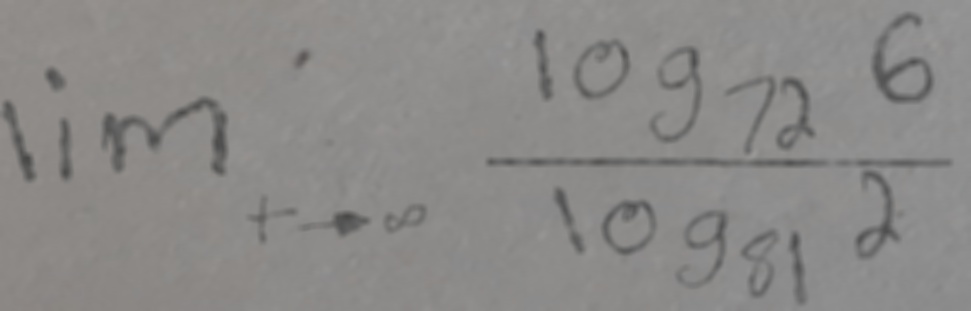 lim t→∞ log₇₂ 6 / log₈₁ 2